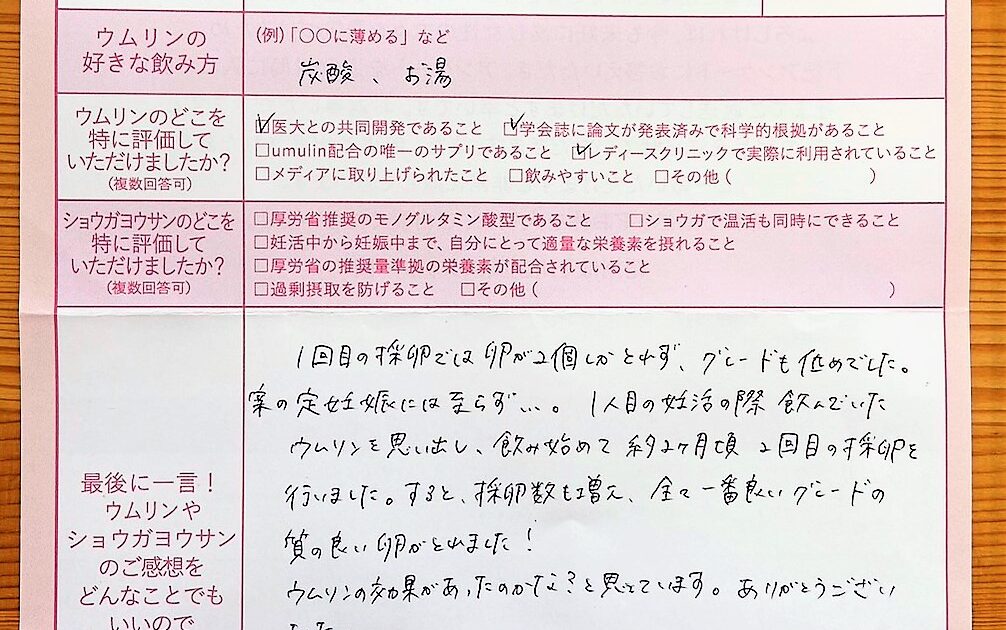 ウムリンの
好きな飲み方
(例)「〇〇に薄める」など
炭酸、お湯
ウムリンのどこを
特に評価して
いただけましたか?
(複数回答可)
☑医大との共同開発であること ☑学会誌に論文が発表済みで科学的根拠があること
□umulin配合の唯一のサプリであること ☑レディースクリニックで実際に利用されていること
□メディアに取り上げられたこと □飲みやすいこと □その他( )
ショウガヨウサンのどこを
特に評価して
いただけましたか?
(複数回答可)
□厚労省推奨のモノグルタミン酸型であること □ショウガで温活も同時にできること
□妊活中から妊娠中まで、自分にとって適量な栄養素を摂れること
□厚労省の推奨量準拠の栄養素が配合されていること
□過剰摂取を防げること □その他( )
最後に一言!
ウムリンや
ショウガヨウサン
のご感想を
どんなことでも
いいので
1回目の採卵では卵が2個しかとれず、グレードも低めでした。
案の定妊娠には至らず…。1人目の妊活の際飲んでいた
ウムリンを思い出し、飲み始めて約2ヶ月頃2回目の採卵を
行いました。すると、採卵数も増え、全て一番良いグレードの
質の良い卵がとれました!
ウムリンの効果があったのかな?と思っています。ありがとうござい